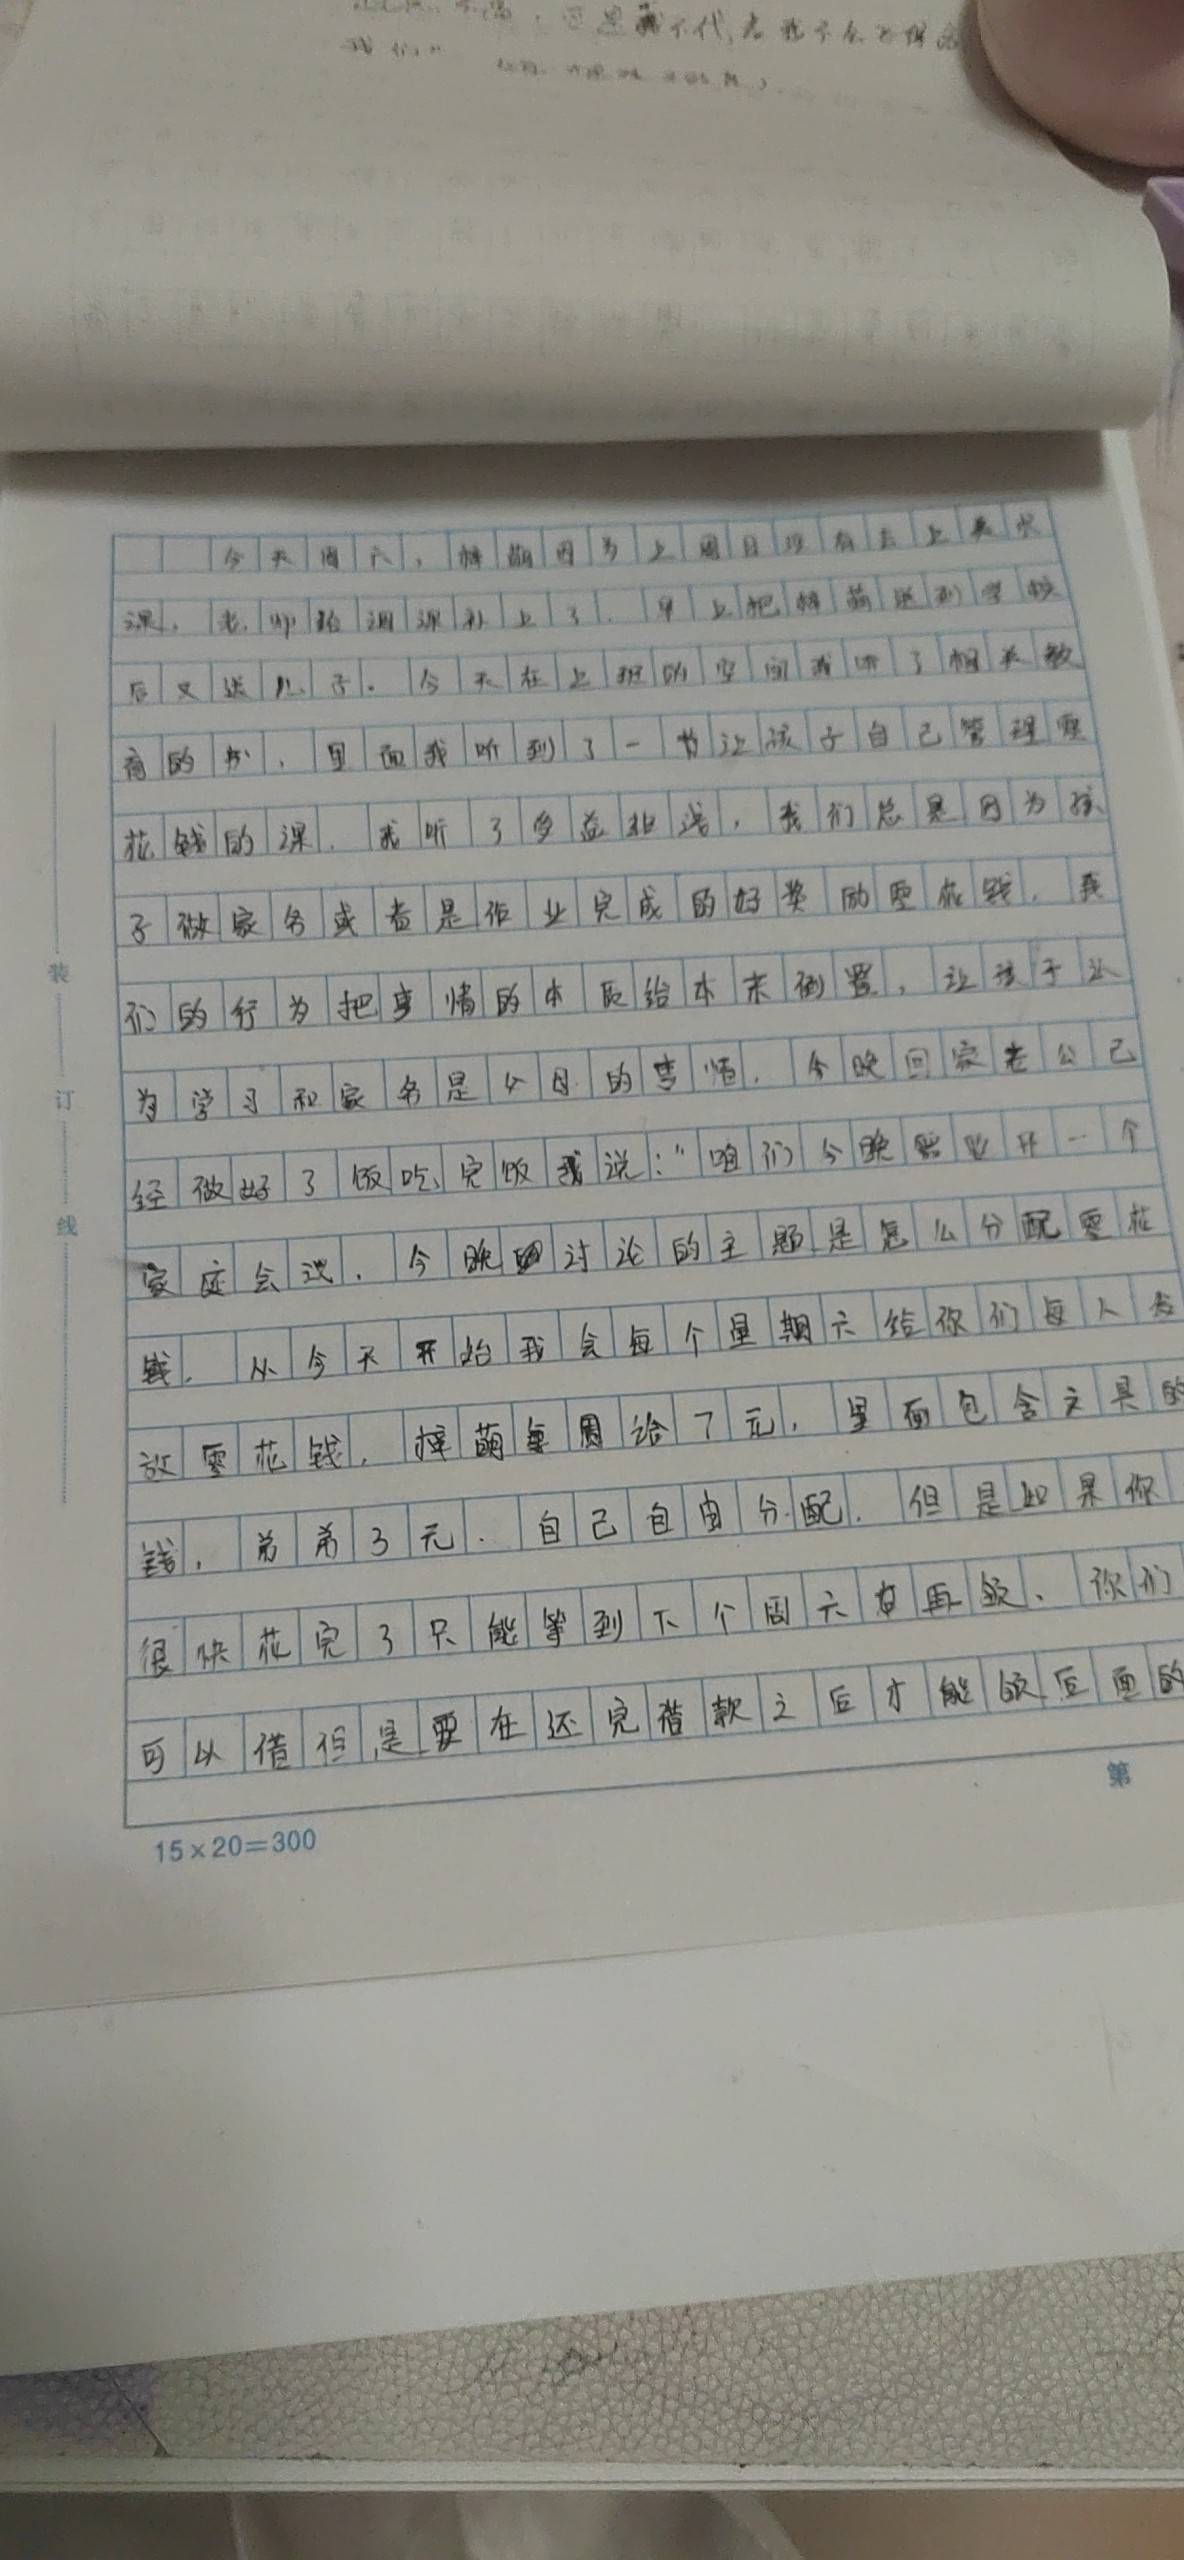 我们"
今天周六,梓萌因为上周日没有去上美术
课,老师给调课补上了.早上把梓萌送到学校
后又送儿子.今天在上班的空间我听了相关教
育的书,里面我听到了一节让孩子自己管理零
花钱的课.我听了受益非浅,我们总是因为孩
子做家务或者是作业完成的好奖励零花钱.我
们的行为把事情的本质给本末倒置,让孩子认
为学习和家务是父母的事情.今晚回家老公已
经做好了饭吃完饭我说:"咱们今晚需要开一个
家庭会议.今晚讨论的主题是怎么分配零花
钱.从今天开始我会每个星期六给你们每人发
放零花钱,梓萌每周给7元,里面包含文具的
钱,弟弟3元.自己自由分配.但是如果你
很快花完了只能等到下个周六在再领、你们
可以借但是要在还完借款之后才能领后面的
装
订
线
15×20=300
第